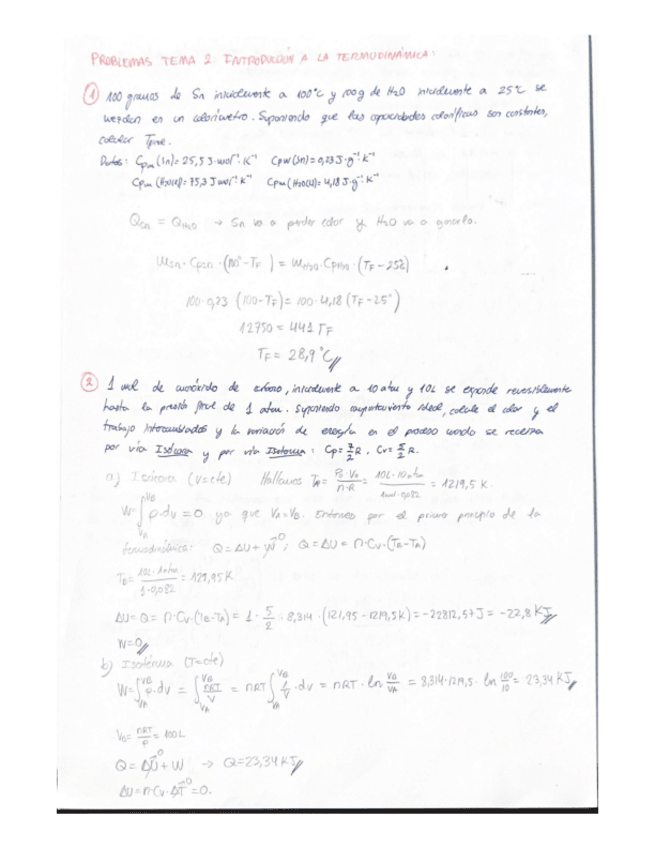 PROBLEMAS TEMA 2: INTRODUCCIÓN A LA TERMODINÁMICA:
① 100 gramos de Sn inicialmente a 100°C y 100g de H2O inicialmente a 25°C se
mezclan en un calorímetro. Suponiendo que las capacidades caloríficas son constantes,
calcular Tfinal.
Datos: Cpm (Sn) = 25,5 J·mol⁻¹·K⁻¹ Cpm (Sn) = 0,23 J·g⁻¹·K⁻¹
Cpm (H2O(l)) = 75,3 J mol⁻¹·K⁻¹ Cpm (H2O(l)) = 4,18 J·g⁻¹·K⁻¹
QSn = QH2O → Sn va a perder calor y H2O va a ganarlo.
mSn · CpSn · (100° - TF) = mH2O · CpH2O · (TF - 25°)
100·0,23 (100 - TF) = 100·4,18 (TF - 25°)
12750 = 441 TF
TF = 28,9 °C
② 1 mol de monóxido de carbono, inicialmente a 10 atm y 10L se expande reversiblemente
hasta la presión final de 1 atm. Suponiendo comportamiento ideal, calcule el calor y el
trabajo intercambiados y la variación de energía en el proceso cuando se realiza
por vía Isócora y por vía Isoterma: Cp = 7/2 R, Cv = 5/2 R.
a) Isócora (V=cte) Hallamos TA = P0·V0 / n·R = 10L·10atm / 1mol·0,082 = 1219,5 K.
W = ∫VA VB p·dv = 0 ya que VA = VB. Entonces por el primer principio de la
termodinámica: Q = ΔU + W⁰; Q = ΔU = n·Cv·(TB - TA)
TB = 10L·1atm / 1·0,082 = 121,95 K
ΔU = Q = n·Cv·(TB - TA) = 1 · 5/2 · 8,314 · (121,95 - 1219,5K) = -22812,57 J = -22,8 KJ
W = 0
b) Isotérma (T=cte)
W = ∫VA VB p·dv = ∫VA VB nRT/V = nRT ∫VA VB 1/V · dv = nRT · ln VB/VA = 8,314·1219,5 · ln 100/10 = 23,34 KJ
VB = nRT/P = 100 L
Q = ΔU⁰ + W → Q = 23,34 KJ
ΔU = n·Cv·ΔT⁰ = 0.